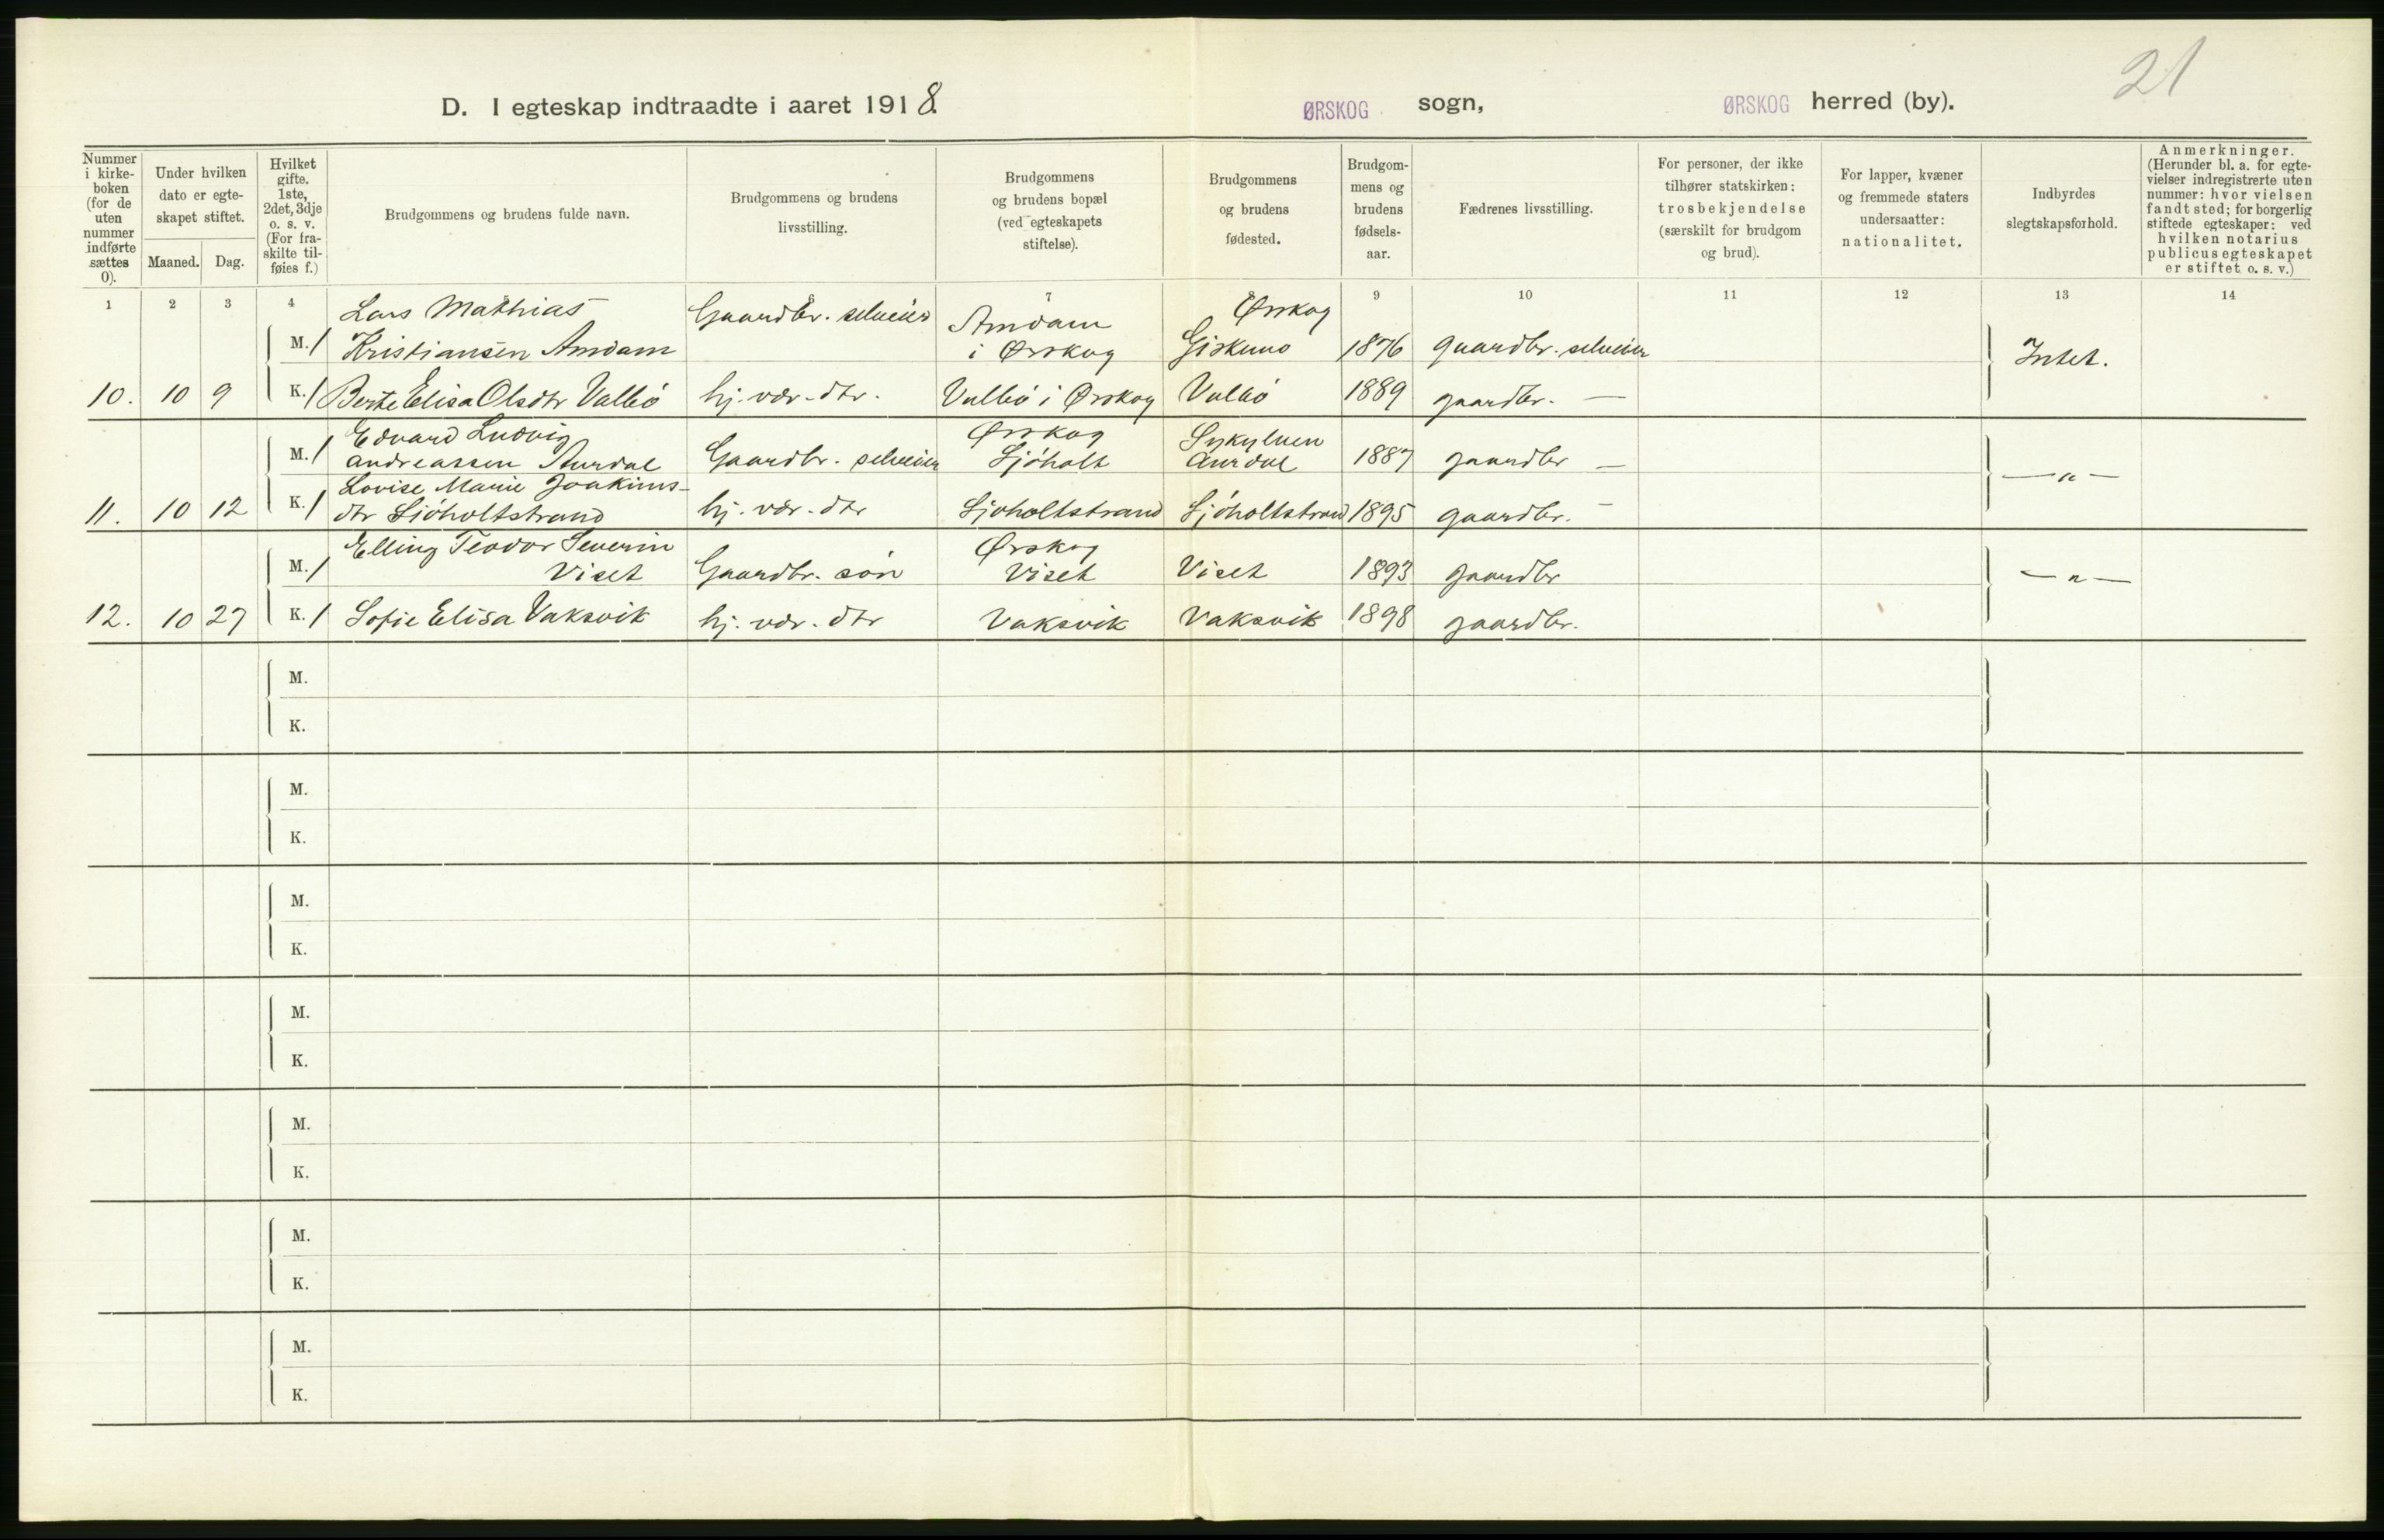 21
D. I egteskap indtraadte i aaret 1918. ØRSKOG sogn, ØRSKOG herred (by).
Nummer i kirke-boken (for de uten nummer indførte sættes 0).
Under hvilken dato er egte-skapet stiftet.
Maaned. Dag.
Hvilket gifte. 1ste, 2det, 3dje o. s. v. (For fra-skilte til-føies f.)
Brudgommens og brudens fulde navn.
Brudgommens og brudens livsstilling.
Brudgommens og brudens bopæl (ved egteskapets stiftelse).
Brudgommens og brudens fødested.
Brudgom-mens og brudens fødsels-aar.
Fædrenes livsstilling.
For personer, der ikke tilhører statskirken: trosbekjendelse (særskilt for brudgom og brud).
For lapper, kvæner og fremmede staters undersaatter: nationalitet.
Indbyrdes slegtskapsforhold.
Anmerkninger. (Herunder bl. a. for egte-vielser indregistrerte uten nummer: hvor vielsen fandt sted; for borgerlig stiftede egteskaper: ved hvilken notarius publicus egteskapet er stiftet o. s. v.)
1 2 3 4 7 9 10 11 12 13 14
Lars Mathias Gaardbr. selveier Amdam Ørskog
M. 1 Kristiansen Amdam i Ørskog 1876 gaardbr. selveier Intet.
10. 10 9 K. 1 Berte Elisa Olsdtr Valbö hj. vær. dtr. Valbö i Ørskog Valbö 1889 gaardbr. —
Edvard Ludvig Ørskog Sykylven
M. 1 Andreassen Aurdal Gaardbr. selveier Sjöholt Aurdal 1887 gaardbr — — „ —
Lovise Marie Joakims-
11. 10 12 K. 1 dtr Sjöholtstrand hj. vær. dtr Sjöholtstrand Sjöholtstrand 1895 gaardbr. —
Elling Teodor Severin Ørskog
M. 1 Viset Gaardbr. sön Viset Viset 1893 gaardbr — „ —
12. 10 27 K. 1 Sofie Elisa Vaksvik hj. vær. dtr Vaksvik Vaksvik 1898 gaardbr.
M.
K.
M.
K.
M.
K.
M.
K.
M.
K.
M.
K.
M.
K.